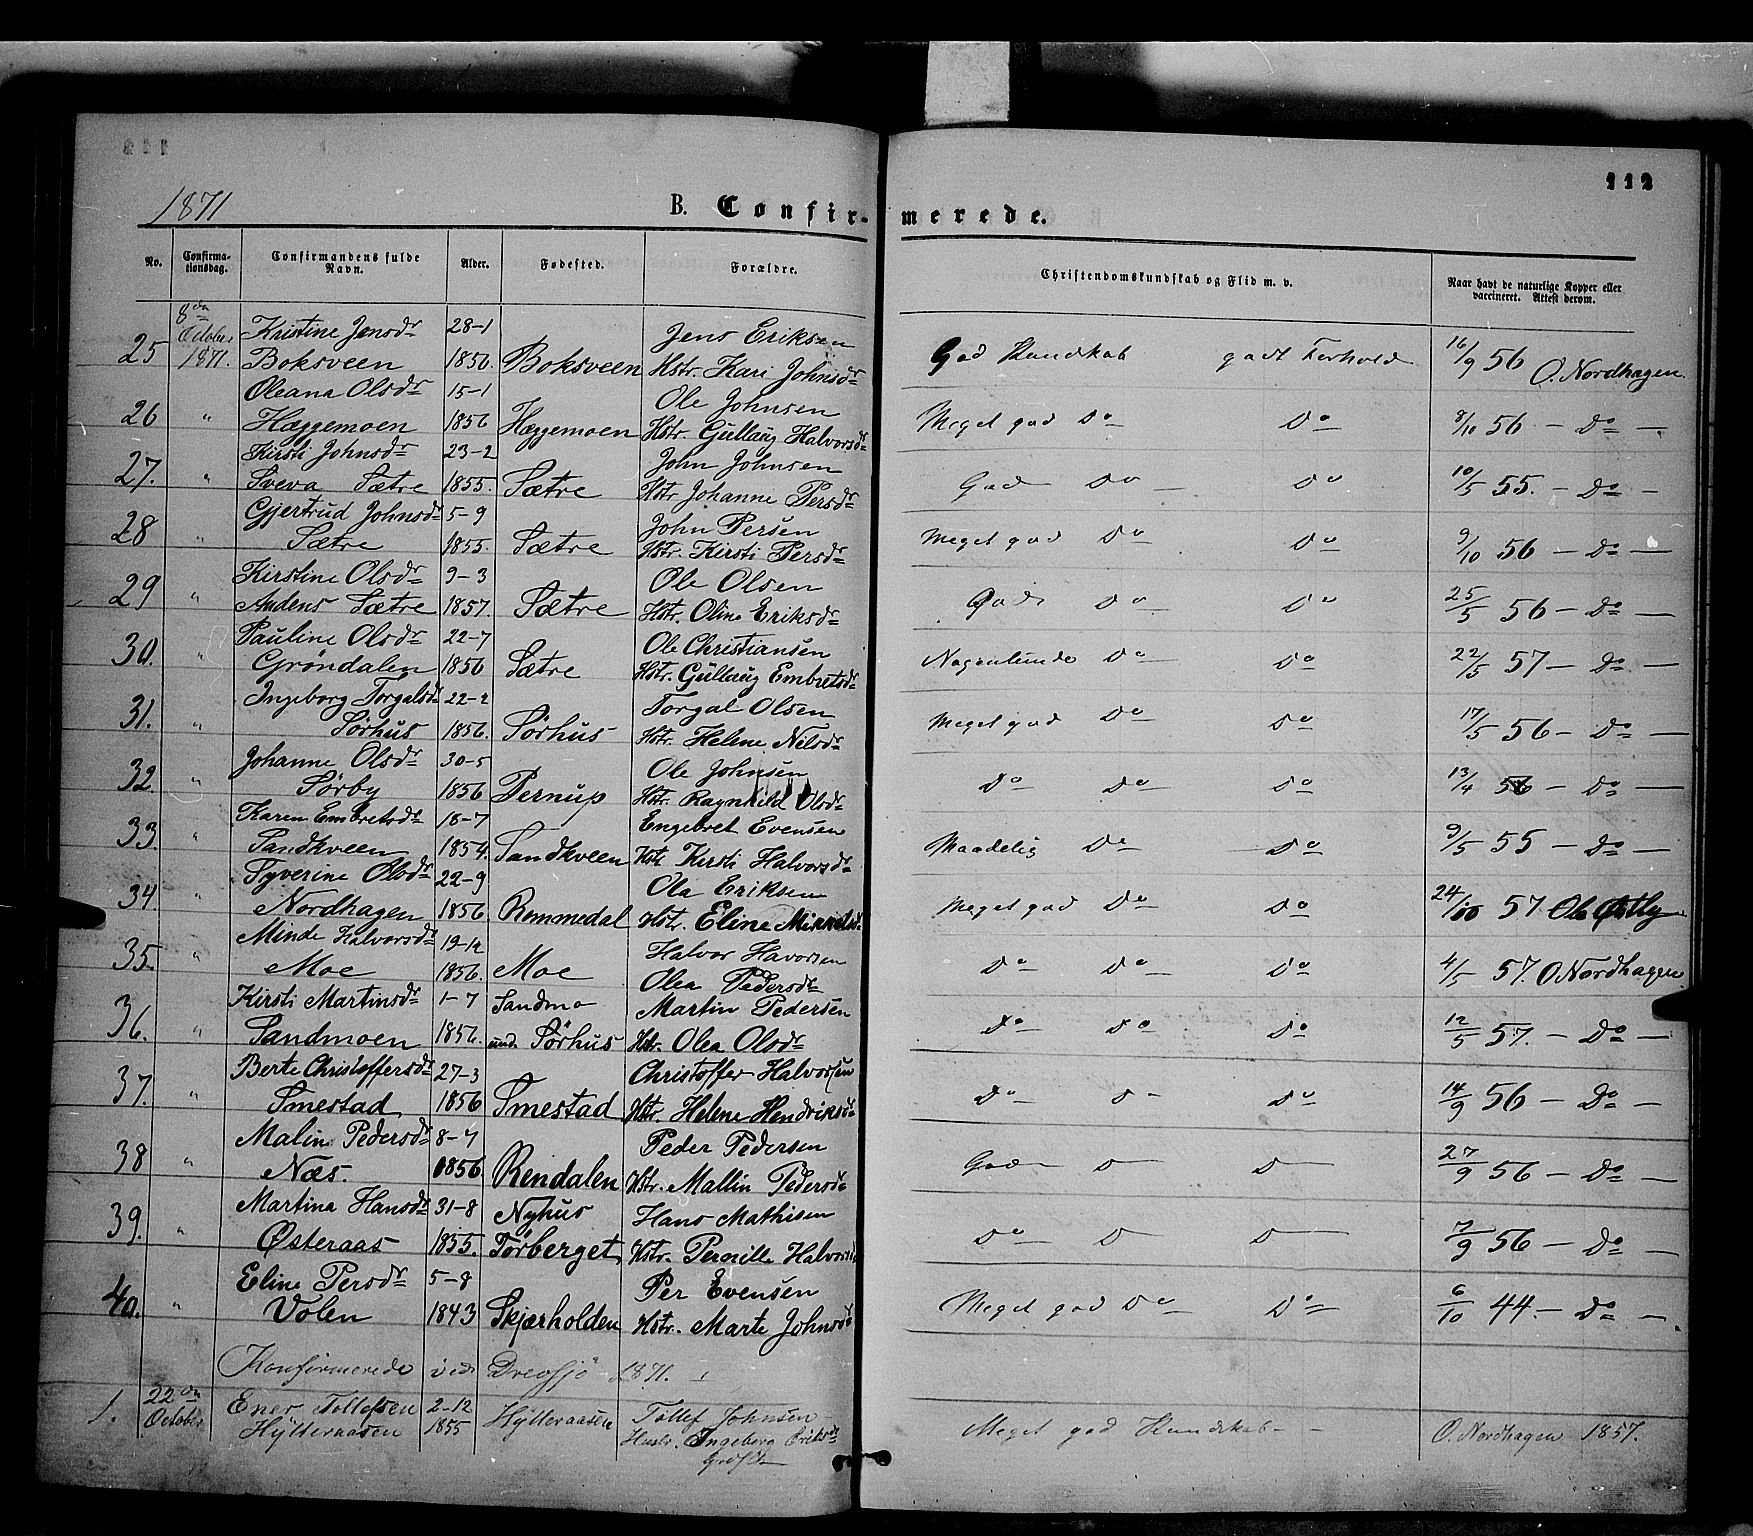 112
1871
B. Confirmerede.
No. Confirmationsdag. Confirmandens fulde Navn. Alder. Fødested. Forældre. Christendomskundskab og Flid m. v. Naar havt de naturlige Kopper eller vaccineret. Attest derom.
8de October Kristine Jensdr 28-1 Jens Eriksen
25 1871. Boksveen 1856. Boksveen Hstr. Kari Johnsdr God Kundskab godt Forhold 16/9 56 O. Nordhagen
Oleana Olsdr 15-1 Ole Johnsen
26 " Hæggemoen 1856 Hæggemoen Hstr. Gullaug Halvorsdr Meget god Do Do 8/10 56 - Do -
Kirsti Johnsdr 23-2 John Johnsen
27. " Sveva Sætre 1855. Sætre Hstr Johanne Persdr God Do - Do 10/5 55. - Do -
Gjertrud Johnsdr 5-9 John Persen
28 " Sætre 1855. Sætre Hstr. Kirsti Persdr Meget god Do Do 9/10 56 - Do -
Kirstine Olsdr 9-3 Ole Olsen
29 " Audens Sætre 1857. Sætre Hstr. Oline Eriksdr God Do Do 25/5 56 - Do -
Pauline Olsdr 22-7 Ole Christiansen
30. " Grøndalen 1856 Sætre Hstr. Gullaug Embretsdr Nogenlunde Do Do 22/5 57 - Do -
Ingeborg Torgalsdr 22-2 Torgal Olsen
31. " Sørhus 1856. Sørhus Hstr. Helene Nilsdr Meget god Do Do 17/5 56 - Do -
Johanne Olsdr 30-5 Ole Johnsen
32. " Sørby 1856 Pernup Hstr. Ragnhild Olsdr Do Do Do 13/4 56 - Do -
Karen Embretsdr 18-7 Engebret Evensen
33. " Sandkveen 1854. Sandkveen Hstr Kirsti Halvorsdr Maadelig Do Do 9/5 55 - Do -
Syverine Olsdr 22-9 Ola Eriksen
34. " Nordhagen 1856. Remmedal Hstr. Eline Mikkelsd. Meget god Do Do 24/10 57 Ole Østby
Minde Halvorsdr 19-12 Halvor Havorsen
35. " Moe 1856. Moe Olea Pedersdr Do Do Do 4/5 57. O. Nordhagen
Kirsti Martinsdr 1-7 Sandmo Martin Pedersen
36. " Sandmoen 1856. und. Sørhus Hstr. Olea Olsdr Do Do Do 12/5 57. - Do -
Berte Christoffersdr 27-3 Christoffer Halvorsen
37. " Smestad 1856 Smestad Hstr. Helene Hendriksd. Do D - Do 14/9 56 - Do -
Malin Pedersdr 8-7 Peder Pedersen
38 " Næs. 1856. Rendalen Hstr. Mallin Pedersdr God D D 27/9 56 - Do
Martina Hansdr 31-8 Nyhus Hans Mathisen
39. " Østeraas 1855. Tørberget Hstr. Pernille Halvorsd Do D D 7/9 56 - Do -
Eline Persdr 5-8 Per Evensen
40. " Volen 1843 Skjærholden Hstr. Marte Johnsd Meget god Do Do 6/10 44. - Do -
Konfirmerede ved Drevsjø 1871.
22de Ener Tollefsen 2-12 Tollef Johnsen
1. October Hylleraasen 1855 Hylleraasen Hustr. Ingeborg Eriksdr Meget god Kundskab - - O. Nordhagen 1857.